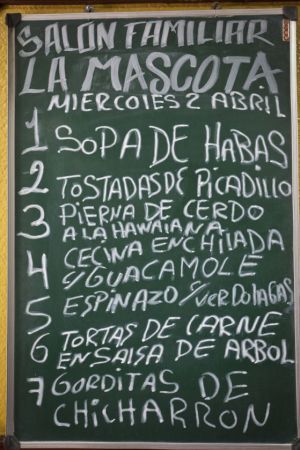 SALÓN FAMILIAR
LA MASCOTA
MIERCOLES 2 ABRIL
1 SOPA DE HABAS
2 TOSTADAS DE PICADILLO
3 PIERNA DE CERDO
A LA HAWAIANA
4 CECINA ENCHILADA
Y GUACAMOLE
5 ESPINAZO Y VERDOLAGAS
6 TORTAS DE CARNE
EN SALSA DE ARBOL
7 GORDITAS DE
CHICHARRON